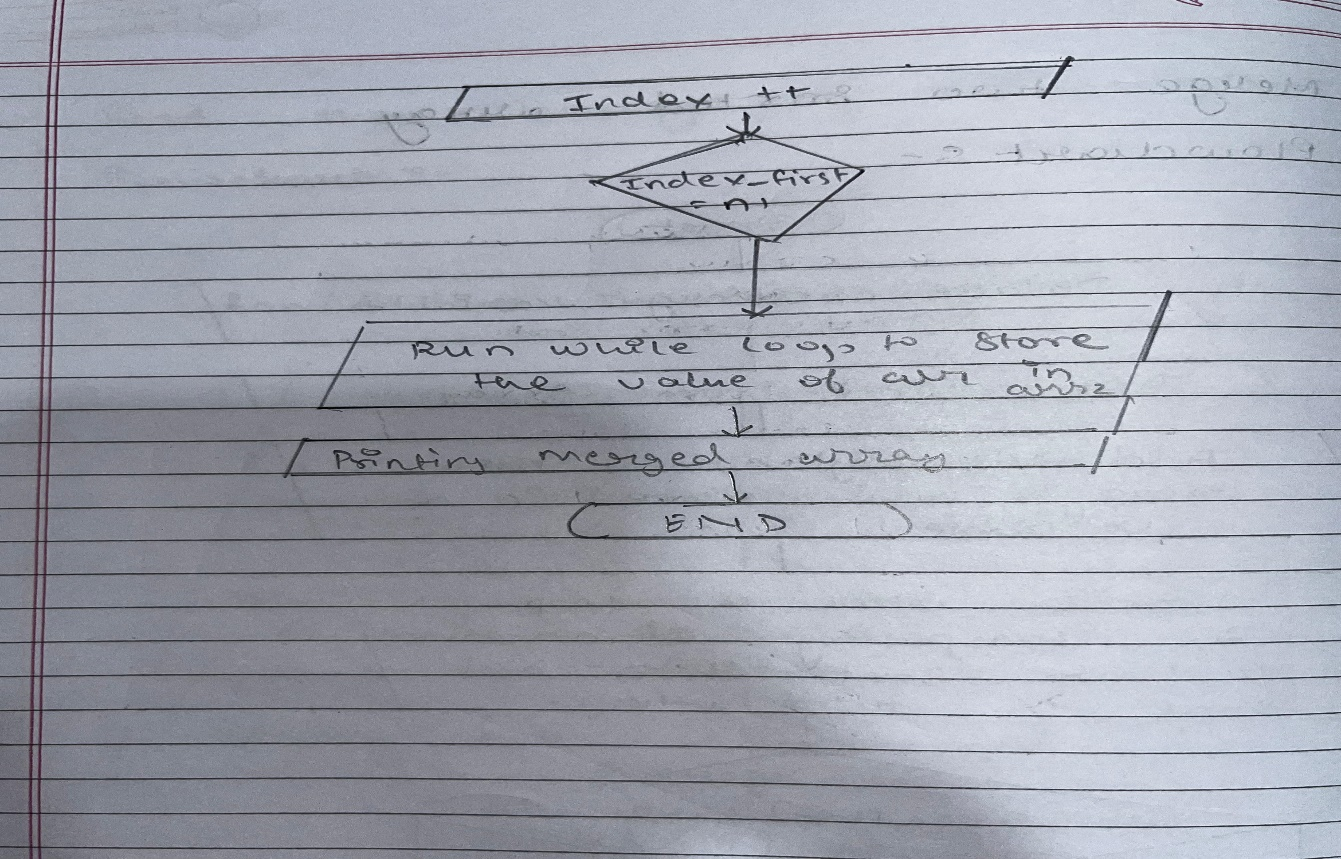 Index ++
Index_first
= n1
Run while loop to store
the value of arr in
arr2
Printing merged array
END